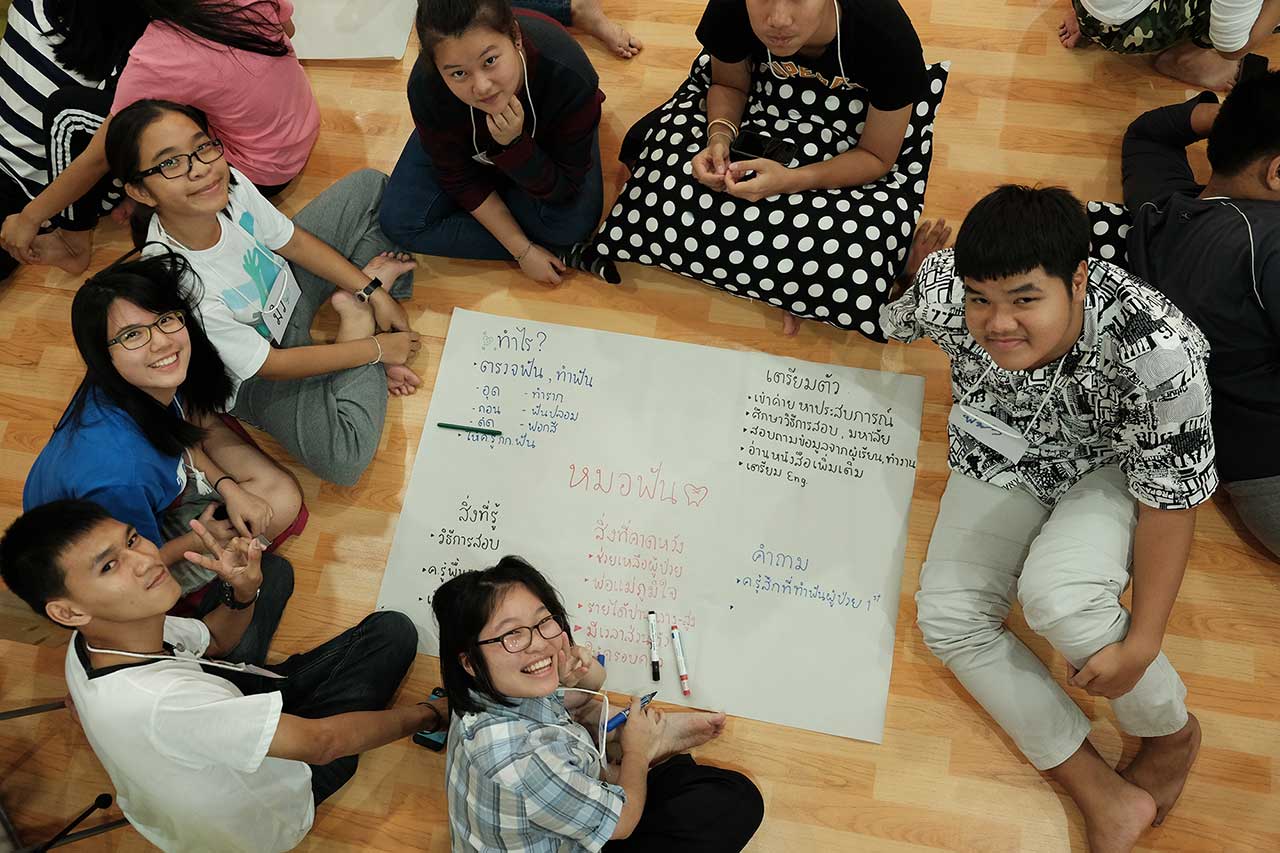 ทำไร?
• ตรวจฟัน, ทำฟัน
- อุด - ทำราก
- ถอน - ฟันปลอม
- ดัด - ฟอกสี
เตรียมตัว
• เข้าค่าย หาประสบการณ์
• ศึกษาวิธีการสอบ, มหาลัย
• สอบถามข้อมูลจากผู้เรียน, ทำงาน
• อ่านหนังสือเพิ่มเติม
• เตรียม Eng.
หมอฟัน
สิ่งที่รู้
• วิธีการสอบ
สิ่งที่คาดหวัง
• ช่วยเหลือผู้ป่วย
• พ่อแม่ภูมิใจ
• รายได้ปานกลาง-สูง
• มีเวลาส่วน
คำถาม
• ค.รู้สึกที่ทำฟันผู้ป่วย 1st